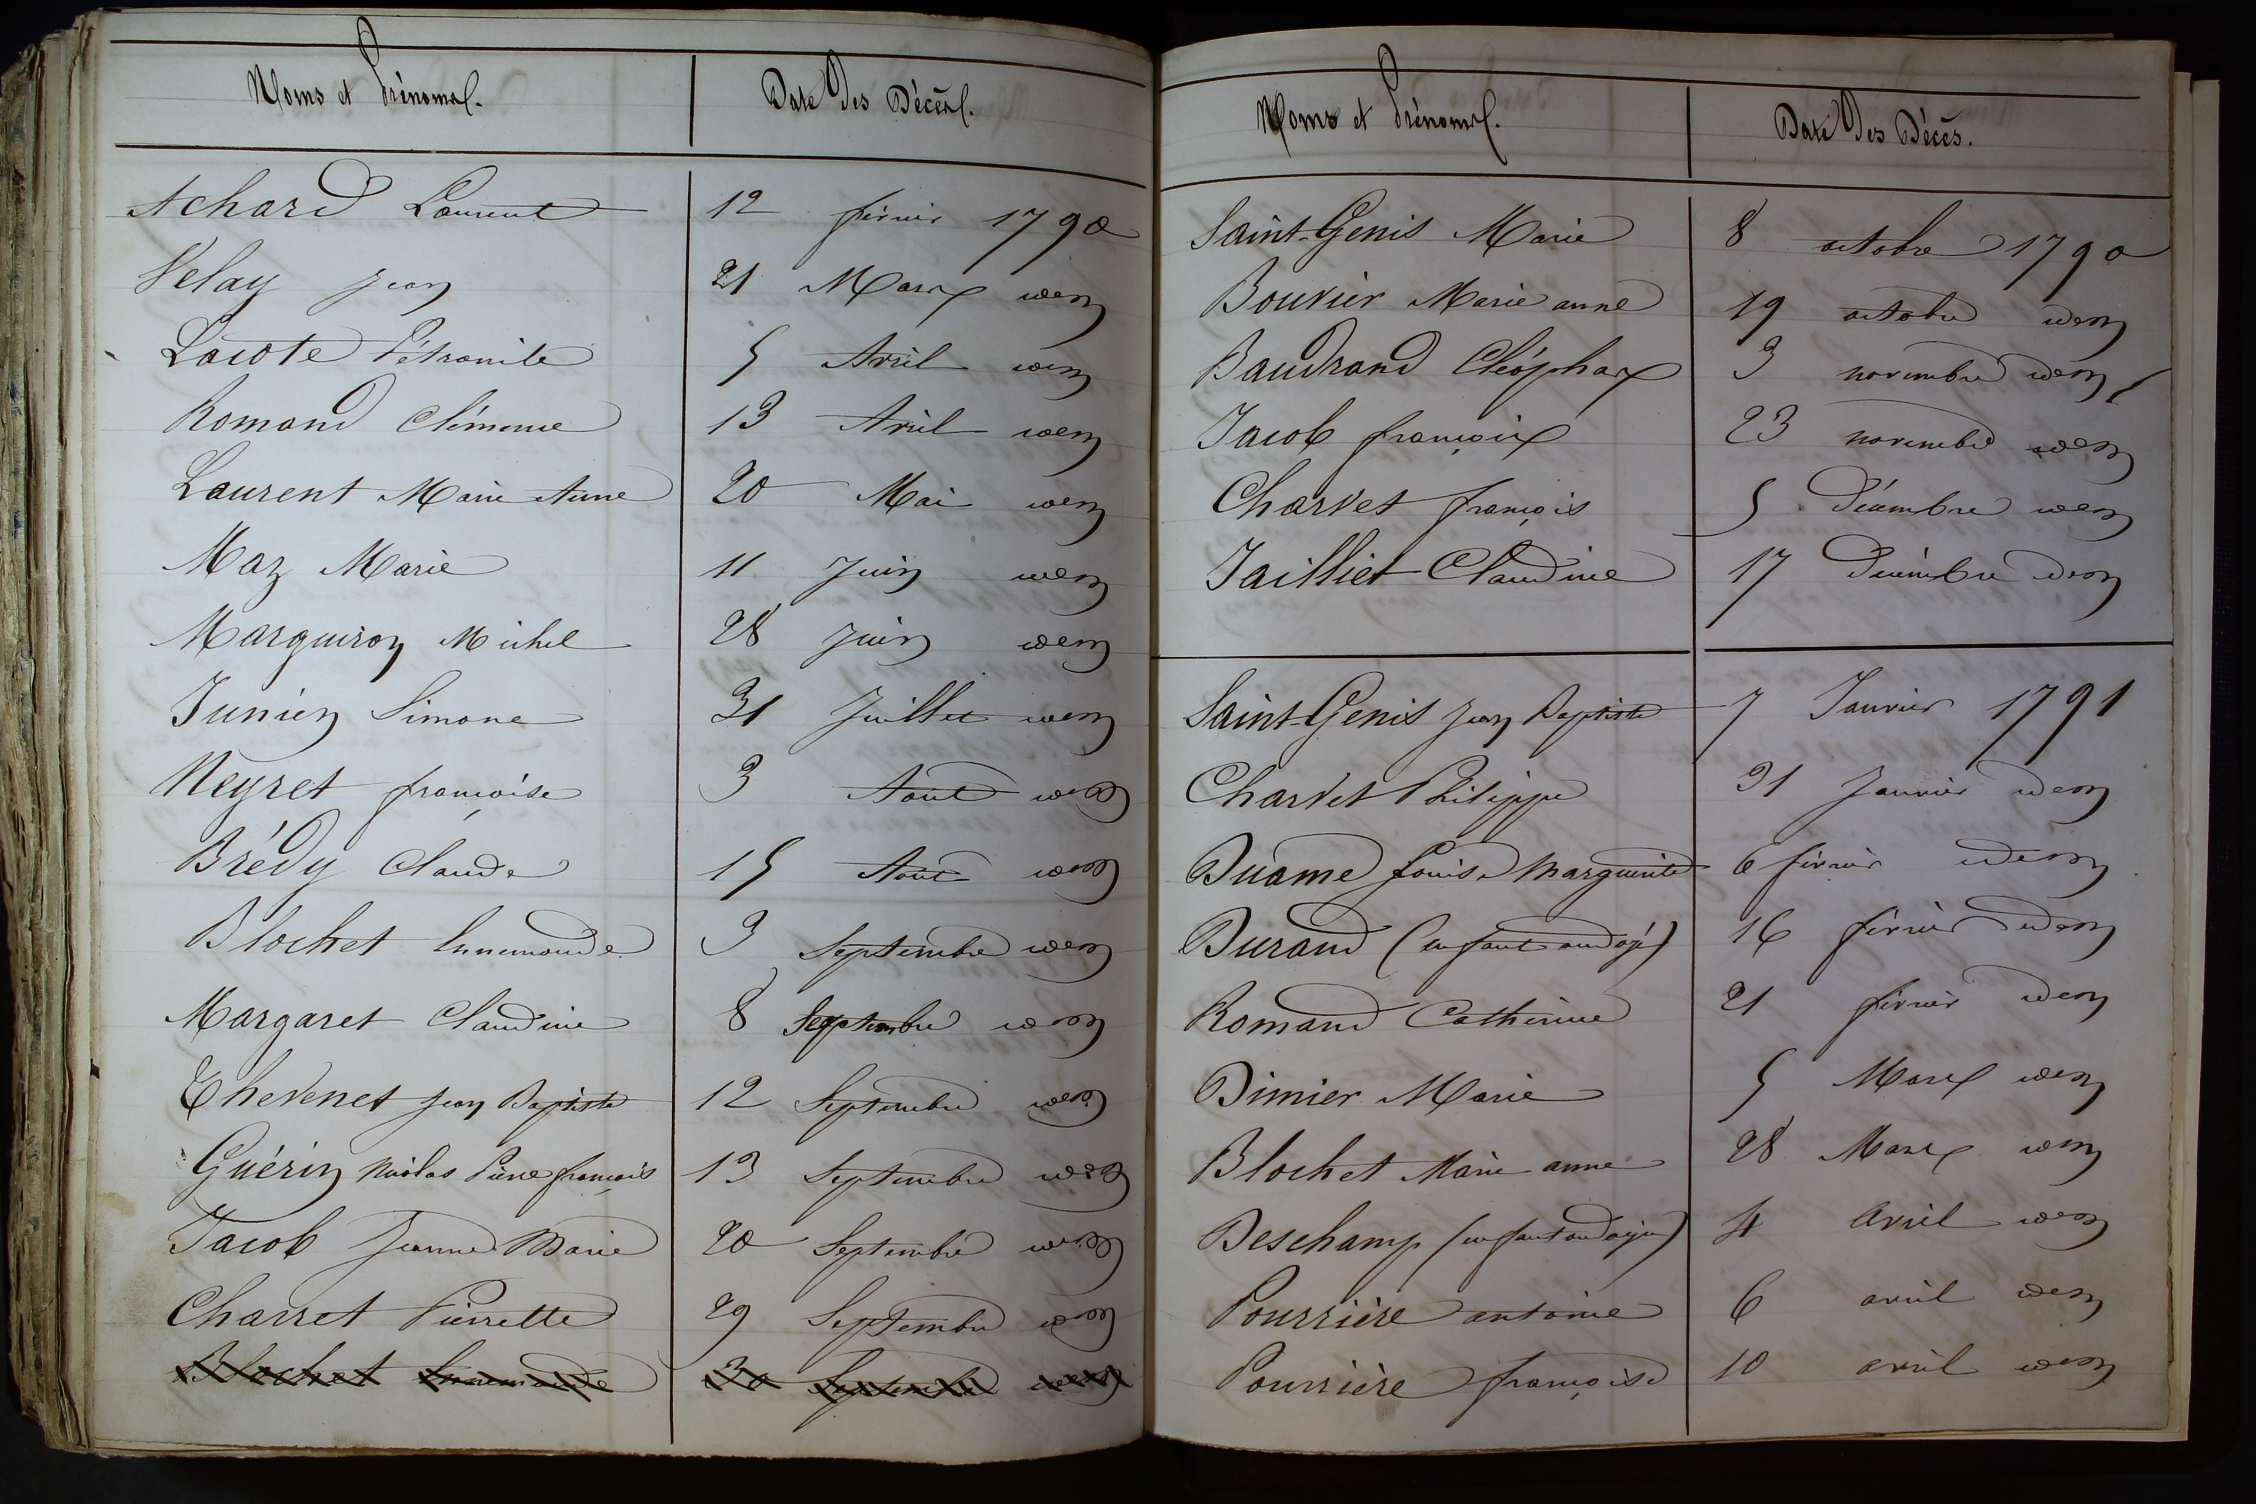 Noms et Prénoms. Date des Décès.
Achard Laurent 12 février 1790
Velay Jean 21 Mars idem
Lacote Pétronile 5 Avril idem
Romand Clémence 13 Avril idem
Laurent Marie Anne 20 Mai idem
Maz Marie 11 Juin idem
Marguiron Michel 28 Juin idem
Junien Simone 31 Juillet idem
Neyret françoise 3 Aout idem
Brédy Claude 15 Aout idem
Blochet Ennemonde 3 Septembre idem
Margaret Claudine 8 Septembre idem
Thevenet Jean Baptiste 12 Septembre idem
Guérin Nicolas Pierre françois 13 Septembre idem
Jacob Jeanne Marie 20 Septembre idem
Charret Pierrette 29 Septembre idem
Blochet Ennemonde 30 Septembre idem
Noms et Prénoms. Date des Décès.
Saint-Genis Marie 8 octobre 1790
Bouvier Marie anne 19 octobre idem
Baudrand Cléophax 3 novembre idem
Jacob françois 23 novembre idem
Charvet françois 5 Décembre idem
Jailliet Claudine 17 Décembre idem
Saint-Genis Jean Baptiste 7 Janvier 1791
Charvet Philippe 31 Janvier idem
Duame Louise Marguerite 6 février idem
Durand (enfant ondoyé) 16 février idem
Romand Catherine 21 février idem
Dimier Marie 5 Mars idem
Blochet Marie anne 28 Mars idem
Deschamp (enfant ondoyé) 4 Avril idem
Pourrière antoine 6 avril idem
Pourrière françoise 10 avril idem